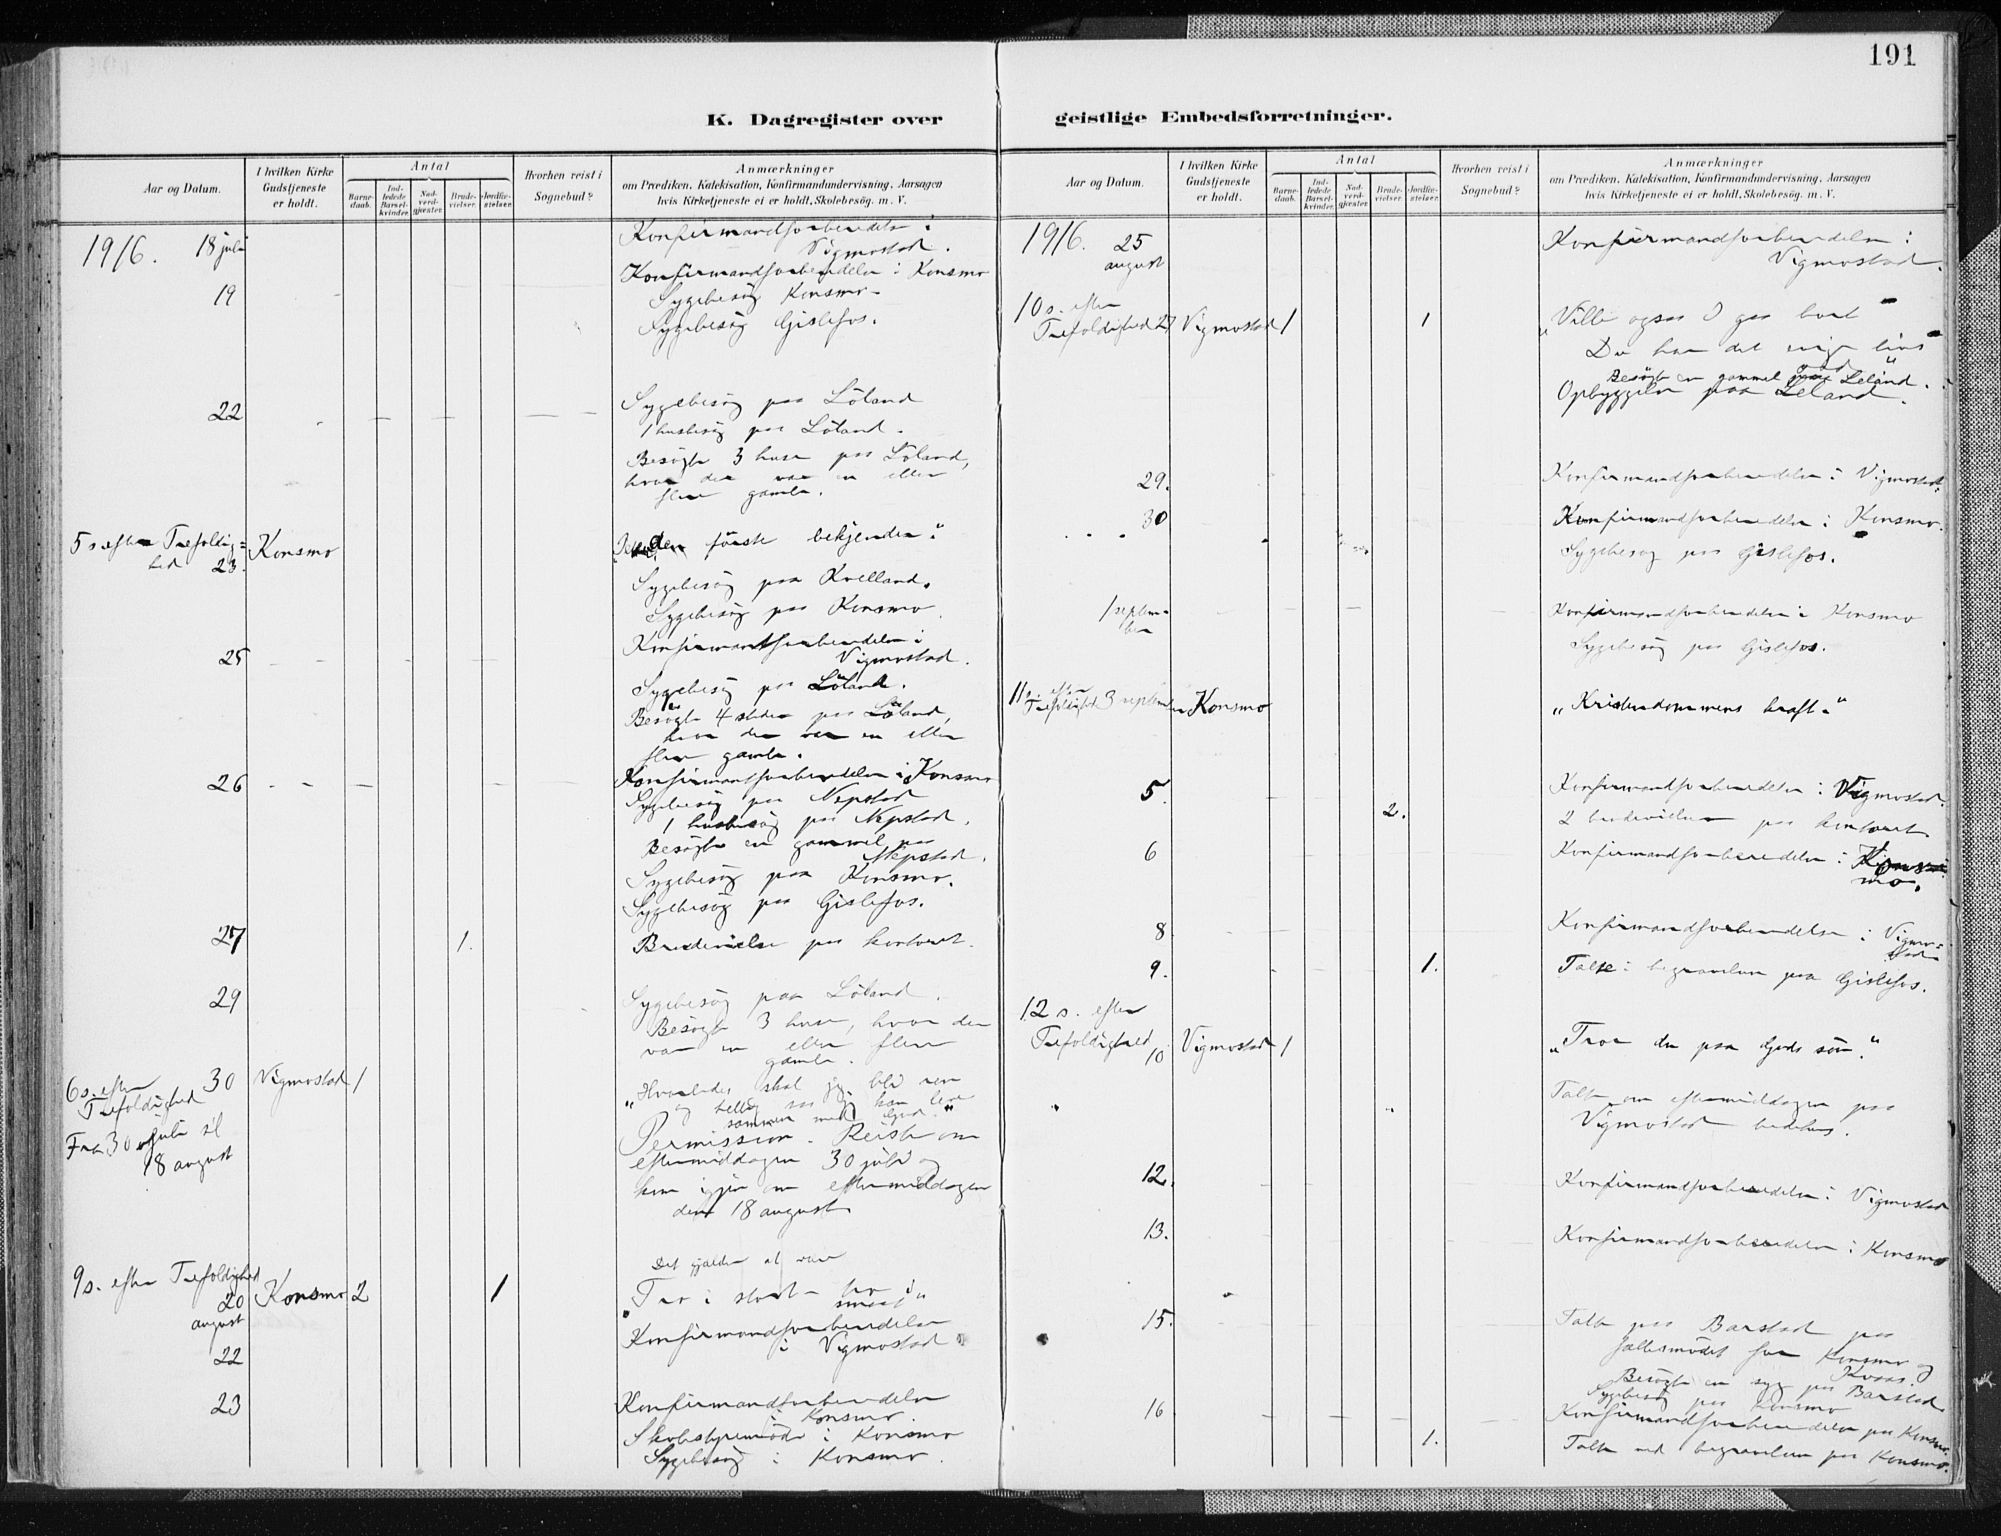 191
K. Dagregister over
geistlige Embedsforretninger.
Aar og Datum.
I hvilken Kirke Gudstjeneste er holdt.
Antal
Barne-daab.
Ind-ledede Barsel-kvinder.
Nad-verd-gjæster.
Brude-vielser.
Jordfæ-stelser.
Hvorhen reist i Sognebud?
Anmærkninger
om Prædiken, Katekisation, Konfirmandundervisning, Aarsagen
hvis Kirketjeneste ei er holdt, Skolebesøg. m. V.
1916. 18 juli
Konfirmandforberedelse i
Vigmostad.
19
Konfirmandforberedelse i Konsmo
Sygebesög Konsmo
Sygebesög Gislefos.
22
Sygebesög paa Löland
1 husbesög paa Löland.
Besögte 3 huse paa Löland,
hvor der var en eller
flere gamle.
5 s. efter Trefoldig=
hed 23. Konsmo
den første bekjender."
Sygebesög paa Kvelland.
Sygebesög paa Konsmo.
25
Konfirmantforberedelse i
Vigmostad.
Sygebesög paa Löland.
Besögte 4 steder paa Löland,
hvor der var en eller
flere gamle.
26
Konfirmantforberedelse i Konsmo
Sygebesög paa Nepstad
1 husbesög paa Nepstad.
Besögte en gammel paa
Nepstad.
Sygebesög paa Konsmo.
Sygebesög paa Gislefos.
27 1.
Brudevielse paa kontoret.
29
Sygebesög paa Löland.
Besögte 3 huse, hvor der
var en eller flere
gamle.
6 s. efter 30 Vigmostad 1
Trefoldighed
"Hvorledes skal jeg bli ren
og hellig saa jeg kan leve
sammen med Gud."
Fra 30 juli til
18 august
Permission. Reiste om
eftermiddagen 30 juli og
kom igjen om eftermiddagen
den 18 august
9 s. efter Trefoldighed
20 Konsmo 2 1
august
Det gjælder at være
"Tro i stort – tro i
smaat"
22
Konfirmandforberedelse
i Vigmostad
23
Konfirmandforberedelse
i Konsmo.
Skolestyremöde i Konsmo
Sygebesög i Konsmo.
Aar og Datum.
I hvilken Kirke Gudstjeneste er holdt.
Antal
Barne-daab.
Ind-ledede Barsel-kvinder.
Nad-verd-gjæster.
Brude-vielser.
Jordfæ-stelser.
Hvorhen reist i Sognebud?
Anmærkninger
om Prædiken, Katekisation, Konfirmandundervisning, Aarsagen
hvis Kirketjeneste ei er holdt, Skolebesøg. m. V.
1916. 25
august
Konfirmandforberedelse i
Vigmostad.
10 s. efter
Trefoldighed 27 Vigmostad 1 1
"Ville ogsaa I gaa bort
Du har det evige livs
Besögte en gammel paa Leland.
Opbyggelse paa Leland.
29.
Konfirmandforberedelse i Vigmostad.
30
Konfirmandforberedelse i Konsmo.
Sygebesög paa Gislefos.
1 septem=
ber
Konfirmandforberedelse i Konsmo
Sygebesög paa Gislefos.
11 s. efter
Trefoldighed 3 september Konsmo
"Kristendommens kraft."
5. 2.
Konfirmandforberedelse i Vigmostad.
2 brudevielser paa kontoret
6
Konfirmandforberedelse i Kons
mo.
8
Konfirmandforberedelse i Vigmo=
stad
9. 1.
Talte i begravelse paa Gislefos.
12 s. efter
Trefoldighed 10 Vigmostad 1
"Tror du paa Guds sön."
Talte om eftermiddagen paa
Vigmostad bedehus.
12.
Konfirmandforberedelse i Vigmostad
13.
Konfirmandforberedelse i Konsmo
15.
Talte paa Barstad paa
fællesmödet for Konsmo og
Kvaas.
Besögte en syg paa Barstad
Sygebesög paa Konsmo
16 1.
Konfirmandforberedelse paa Konsmo.
Talte ved begravelse paa Konsmo.